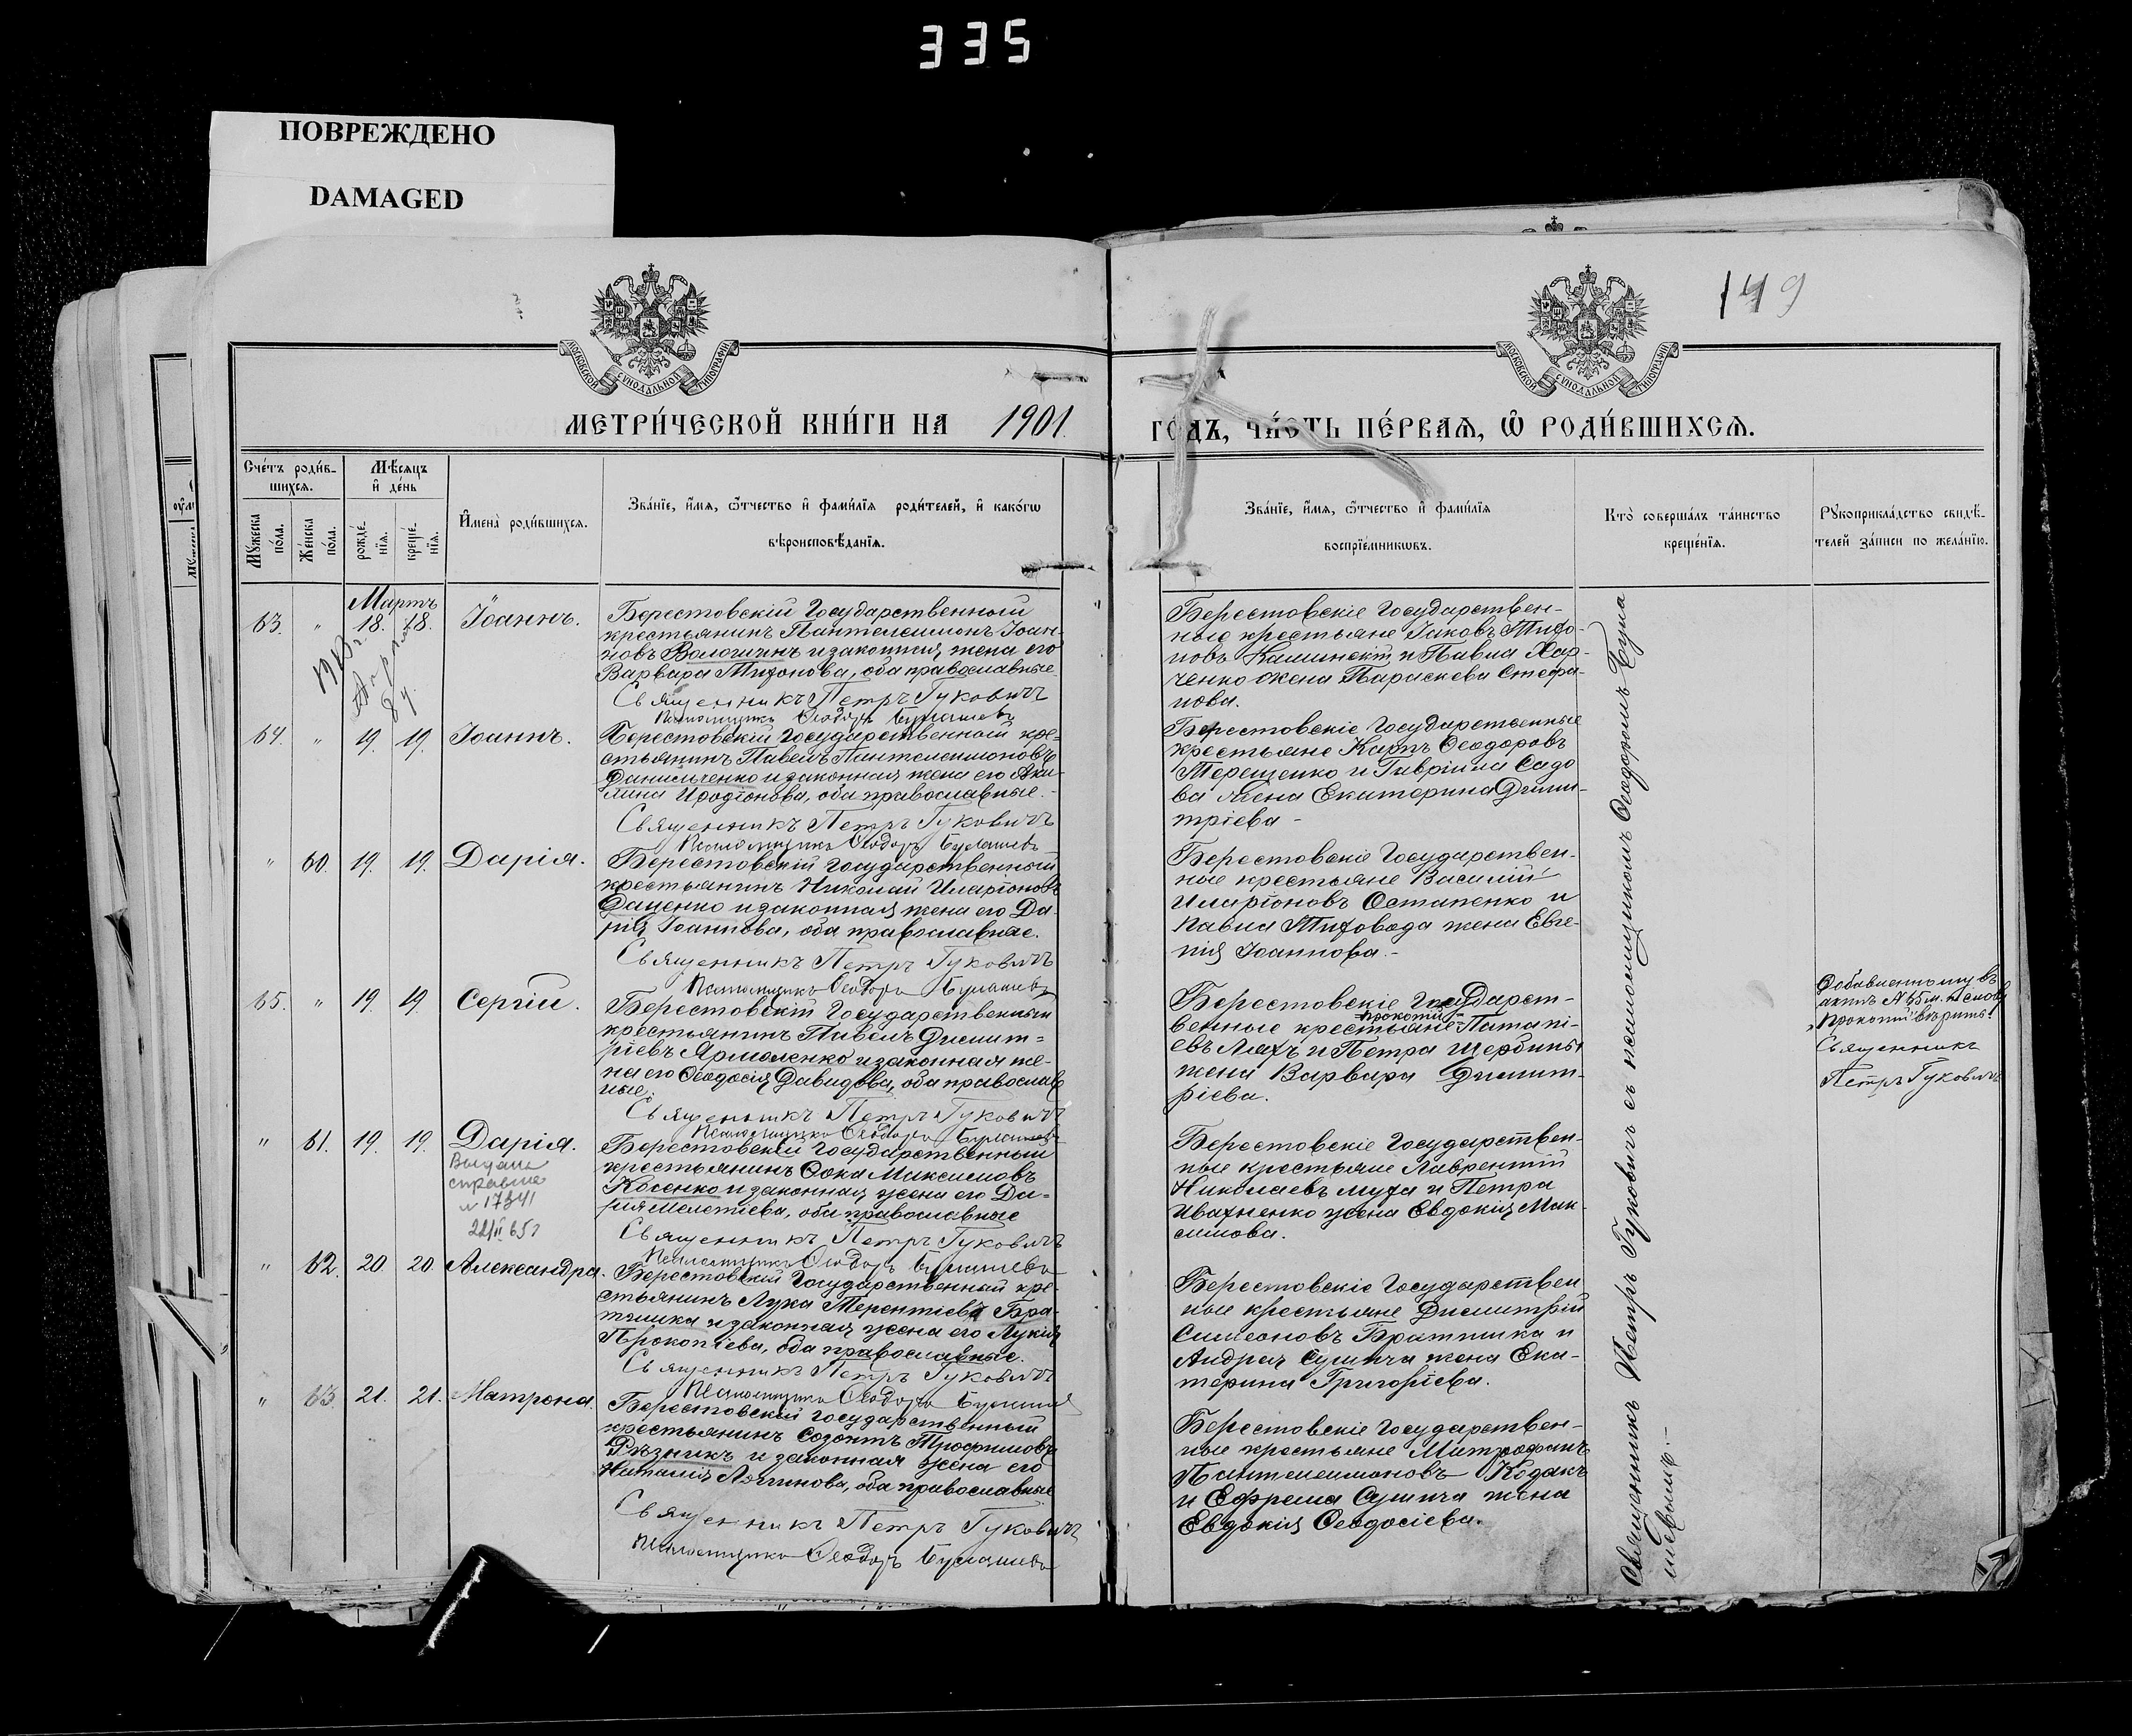 335
ПОВРЕЖДЕНО
DAMAGED
149
МОСКОВСКОЙ СѴНОДАЛЬНОЙ ТИПОГРАФІИ
МОСКОВСКОЙ СѴНОДАЛЬНОЙ ТИПОГРАФІИ
МЕТРИ́ЧЕСКОЙ КНИ́ГИ НА 1901 ГО́ДЪ, ЧА́СТЬ ПЕ́РВАЯ, Ѡ РОДИ́ВШИХСЯ.
Сче́тъ роди́в-
шихся.
Мꙋжеска по́ла.
Же́нска по́ла.
Мѣ́сяцъ
и҆ де́нь
рожде́-
нїя.
креще́-
нїя.
И҆мена̀ роди́вшихся.
Зва́нїе, и҆́мя, ѻ҆́тчество и҆ фами́лїя роди́телей, и҆ како́гѡ
вѣроисповѣ́данїя.
Зва́нїе, и҆́мя, ѻ҆́тчество и҆ фами́лїя
воспрїе́мникѡвъ.
Кто̀ соверша́лъ та́инство
креще́нїя.
Рꙋкоприкла́дство свидѣ́-
телей за́писи по жела́нїю.
Мартъ
63. " 18. 18. Іоаннъ.
Берестовскій Государственный
крестьянинъ Пантелеимонъ Іоан-
новъ Вологинъ и законная жена его
Варвара Тихонова, оба православные
Священникъ Петръ Гуковичъ
Псаломщикъ Ѳеодоръ
Берестовскіе Государствен-
ные крестьяне Іаковъ Тихо-
новъ Каминскій и Павла Хар-
ченко жена Параскева Стефа-
нова.
64. " 19. 19. Іоаннъ.
Берестовскій Государственный кре-
стьянинъ Павелъ Пантелеимоновъ
Данильченко и законная жена его Аки-
лина Иродіонова, оба православные.
Священникъ Петръ Гуковичъ
Псаломщикъ Ѳеодоръ
Берестовскіе Государственные
крестьяне Карпъ Ѳеодоровъ
Терещенко и Гавріила Садо
ва жена Екатерина Дими-
тріева -
" 60. 19. 19. Дарія.
Берестовскій Государственный
крестьянинъ Николай Иларіоновъ
Даценко и законная жена его Да-
рія Іоаннова, оба православные.
Священникъ Петръ Гуковичъ
Псаломщикъ Ѳеодоръ
Берестовскіе Государствен-
ные крестьяне Василій
Иларіоновъ Остапенко и
Павла Тиховода жена Евге-
нія Іоаннова.-
65. " 19. 19. Сергій.
Берестовскій Государственный
крестьянинъ Павелъ Димит-
ріевъ Ярмоленко и законная же-
на его Ѳеодосія Давидова, оба православ
ные.
Священникъ Петръ Гуковичъ
Псаломщикъ Ѳеодоръ
Берестовскіе Государст-
Прокопій
венные крестьяне Патапі-
евъ Ляхъ и Петра Щербины
жена Варвара Димит-
ріева.
Добавленному въ
актъ № 65 м. п слову
„Прокопій" вѣрить.
Священникъ
Петръ Гуковичъ
" 61. 19. 19. Дарія.
Выдана
справка
№ 17341
Берестовскій Государственный
крестьянинъ Ѳока Максимовъ
Косенко и законная жена его Да-
рія Мелетіева, оба православные
Священникъ Петръ Гуковичъ
Псаломщикъ Ѳеодоръ
Берестовскіе Государствен-
ные крестьяне Лаврентій
Николаевъ Муха и Петра
Ивахненко жена Евдокія Мак-
симова.
" 62. 20. 20. Александра.
Берестовскій Государственный кре-
стьянинъ Лука Терентіевъ Бра-
тишка и законная жена его Лукія
Прокопіева, оба православные.
Священникъ Петръ Гуковичъ
Псаломщикъ Ѳеодоръ
Берестовскіе Государствен
ные крестьяне Димитрій
Симеоновъ Братишка и
Андрея жена Ека-
терина Григоріева.
" 63. 21. 21. Матрона.
Берестовскій Государственный
крестьянинъ Созонтъ Трофимовъ
Рѣзникъ и законная жена его
Наталія Логинова, оба православные
Священникъ Петръ Гуковичъ
Псаломщикъ Ѳеодоръ
Берестовскіе Государствен-
ные крестьяне Митрофанъ
Пантелеимоновъ Кодакъ
и Ефрема жена
Евдокія Ѳеодосіева.
Священникъ Петръ Гуковичъ съ псаломщикомъ Ѳеодоромъ